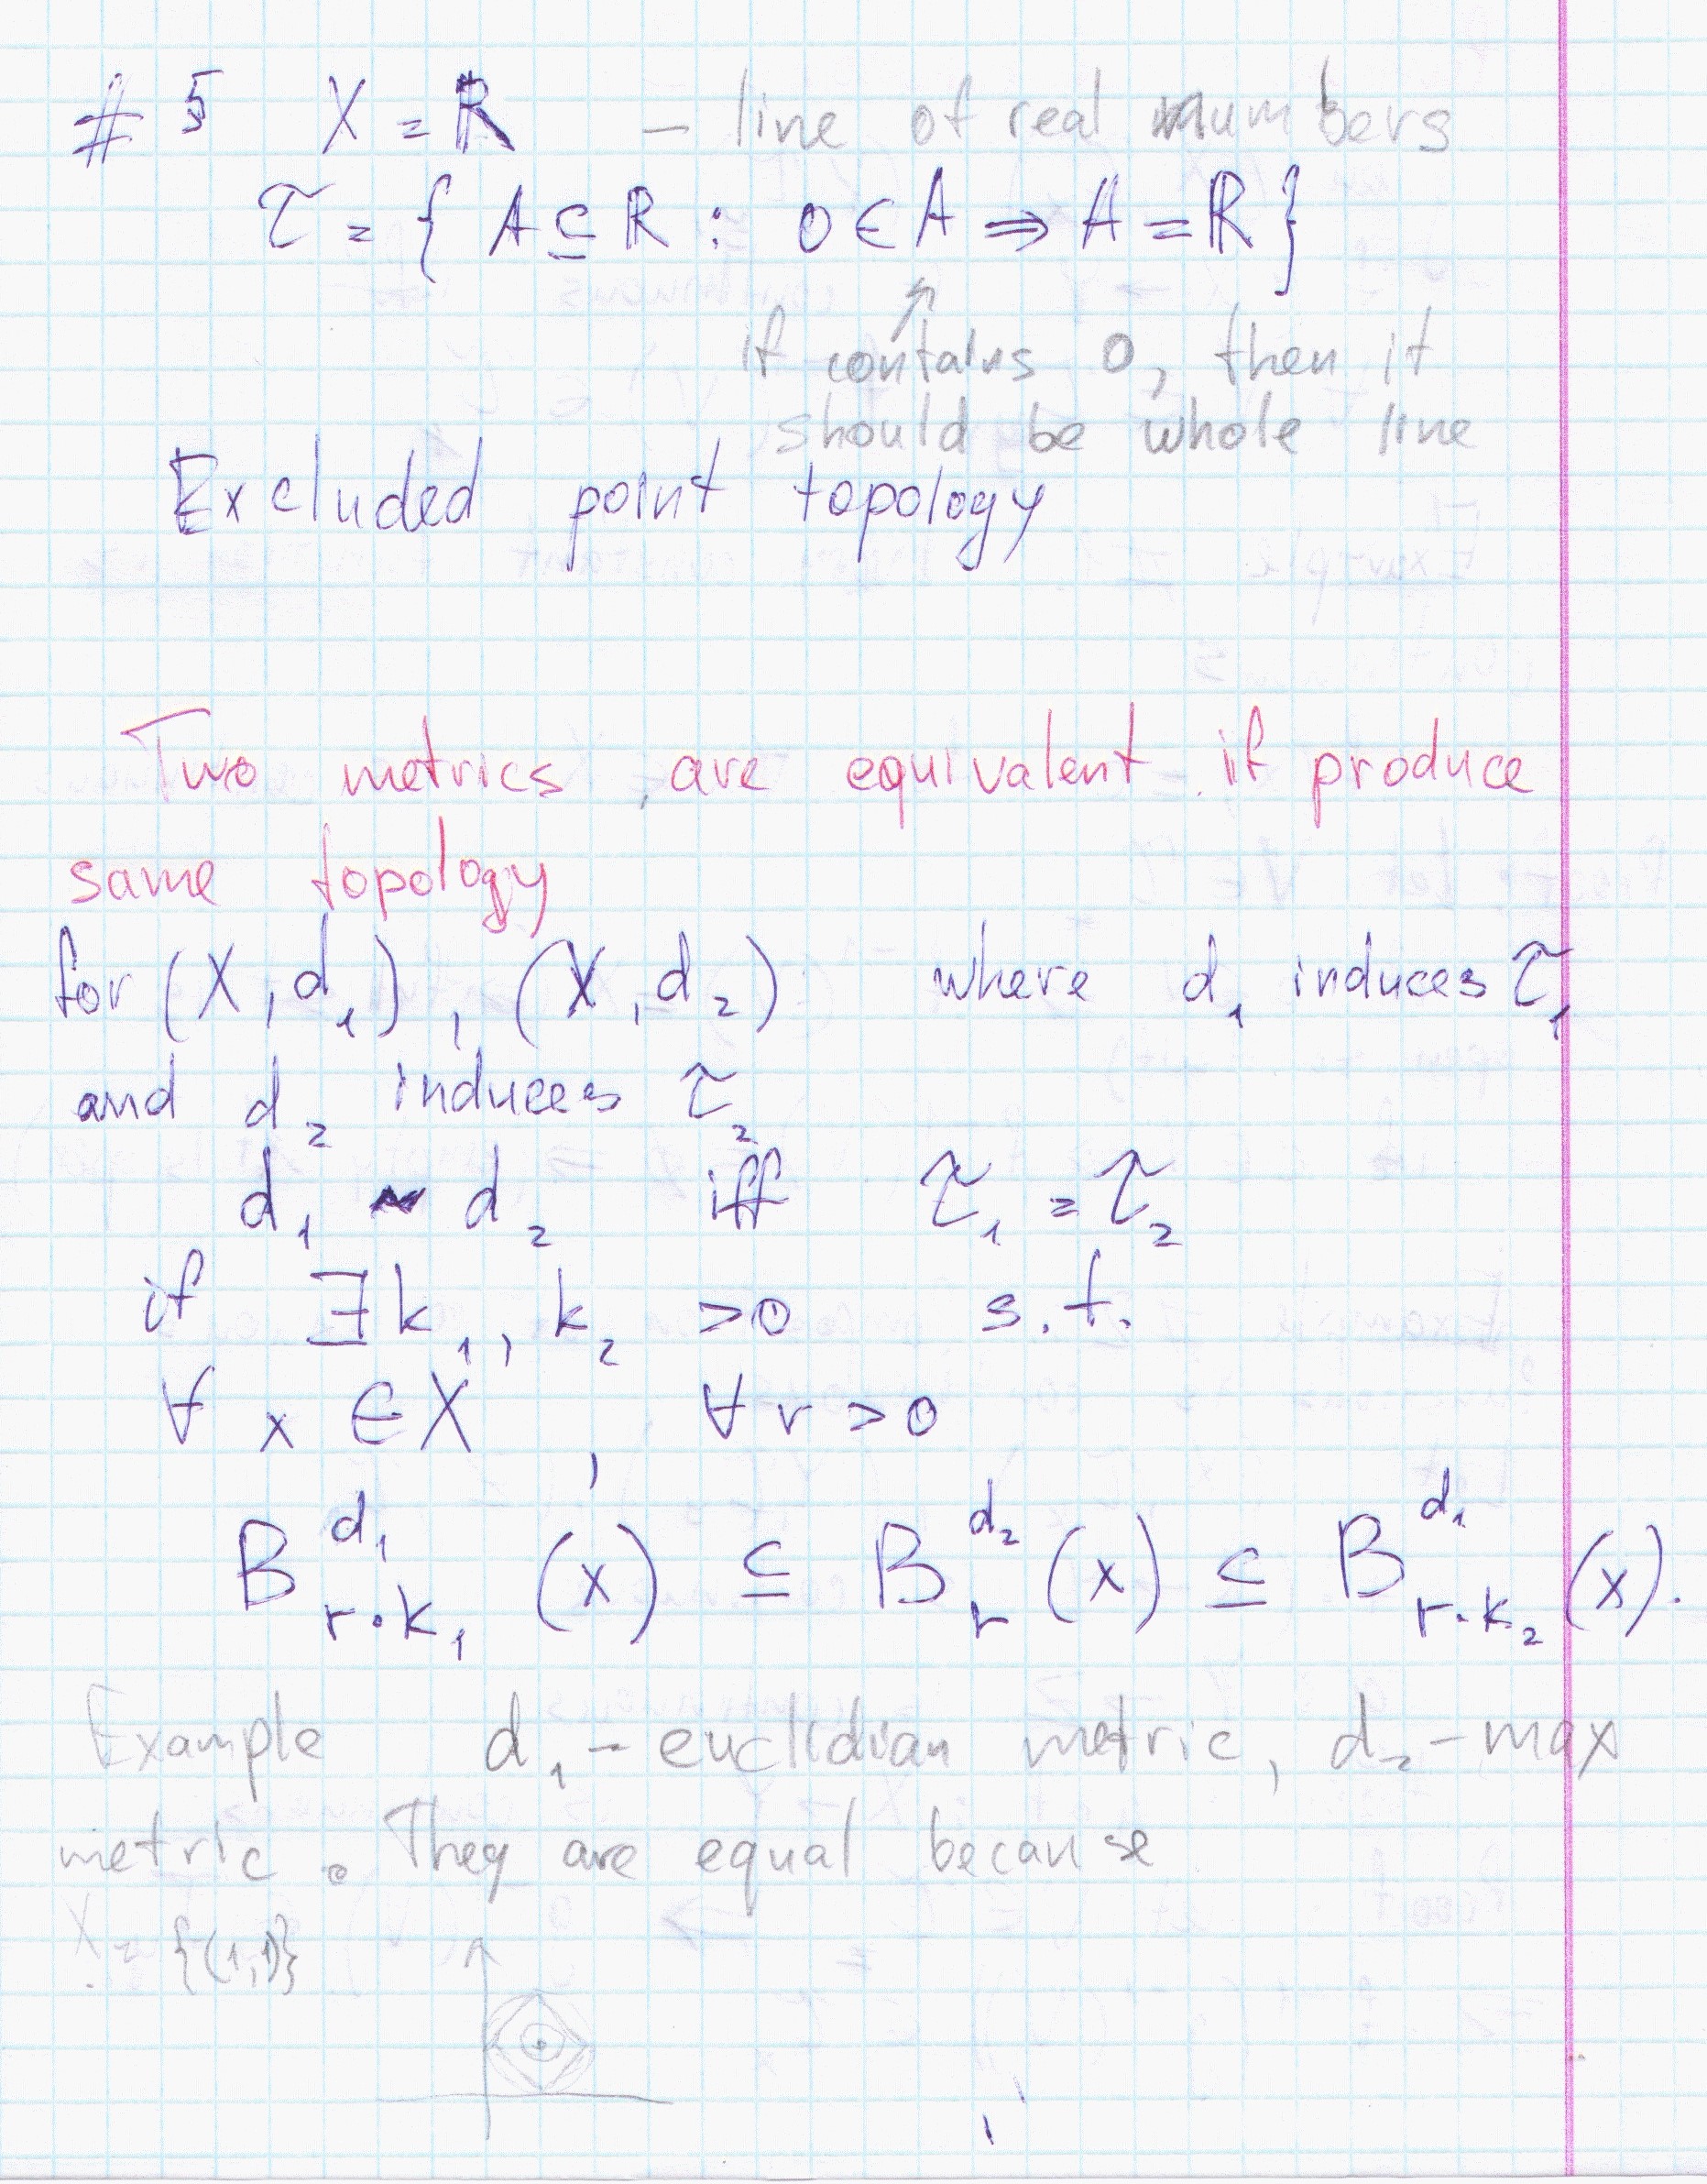 # 5 X = ℝ – line of real numbers
τ = { A ⊆ ℝ : 0 ∈ A ⇒ A = ℝ }
if contains 0, then it
should be whole line
Excluded point topology
Two metrics, are equivalent if produce
same topology
for (X, d₁), (X, d₂) where d₁ induces τ₁
and d₂ induces τ₂
d₁ ~ d₂ iff τ₁ = τ₂
if ∃ k₁, k₂ > 0 s.t.
∀ x ∈ X, ∀ r > 0
B^{d₁}_{r·k₁}(x) ⊆ B^{d₂}_{r}(x) ⊆ B^{d₁}_{r·k₂}(x).
Example d₁ – euclidian metric, d₂ – max
metric. They are equal because
X = {(1,1)}